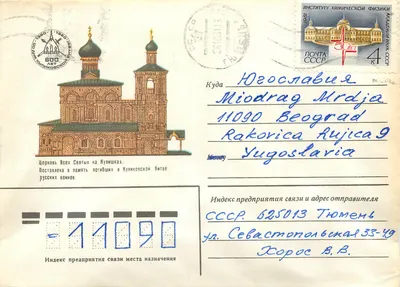 600
ЛЕТ
ПОЧТА
СССР
4к
Церковь Всех Святых на Кулишках.
Поставлена в память погибших в Куликовской битве
русских воинов
Куда
Югославия
Miodrag Mrdja
11090 Beograd
Rakovica Rujica 9
Yugoslavia
Индекс предприятия связи и адрес отправителя
СССР. 625013 Тюмень
ул. Севастопольская 33-49
Хорос В.В.
-11090
Индекс предприятия связи места назначения